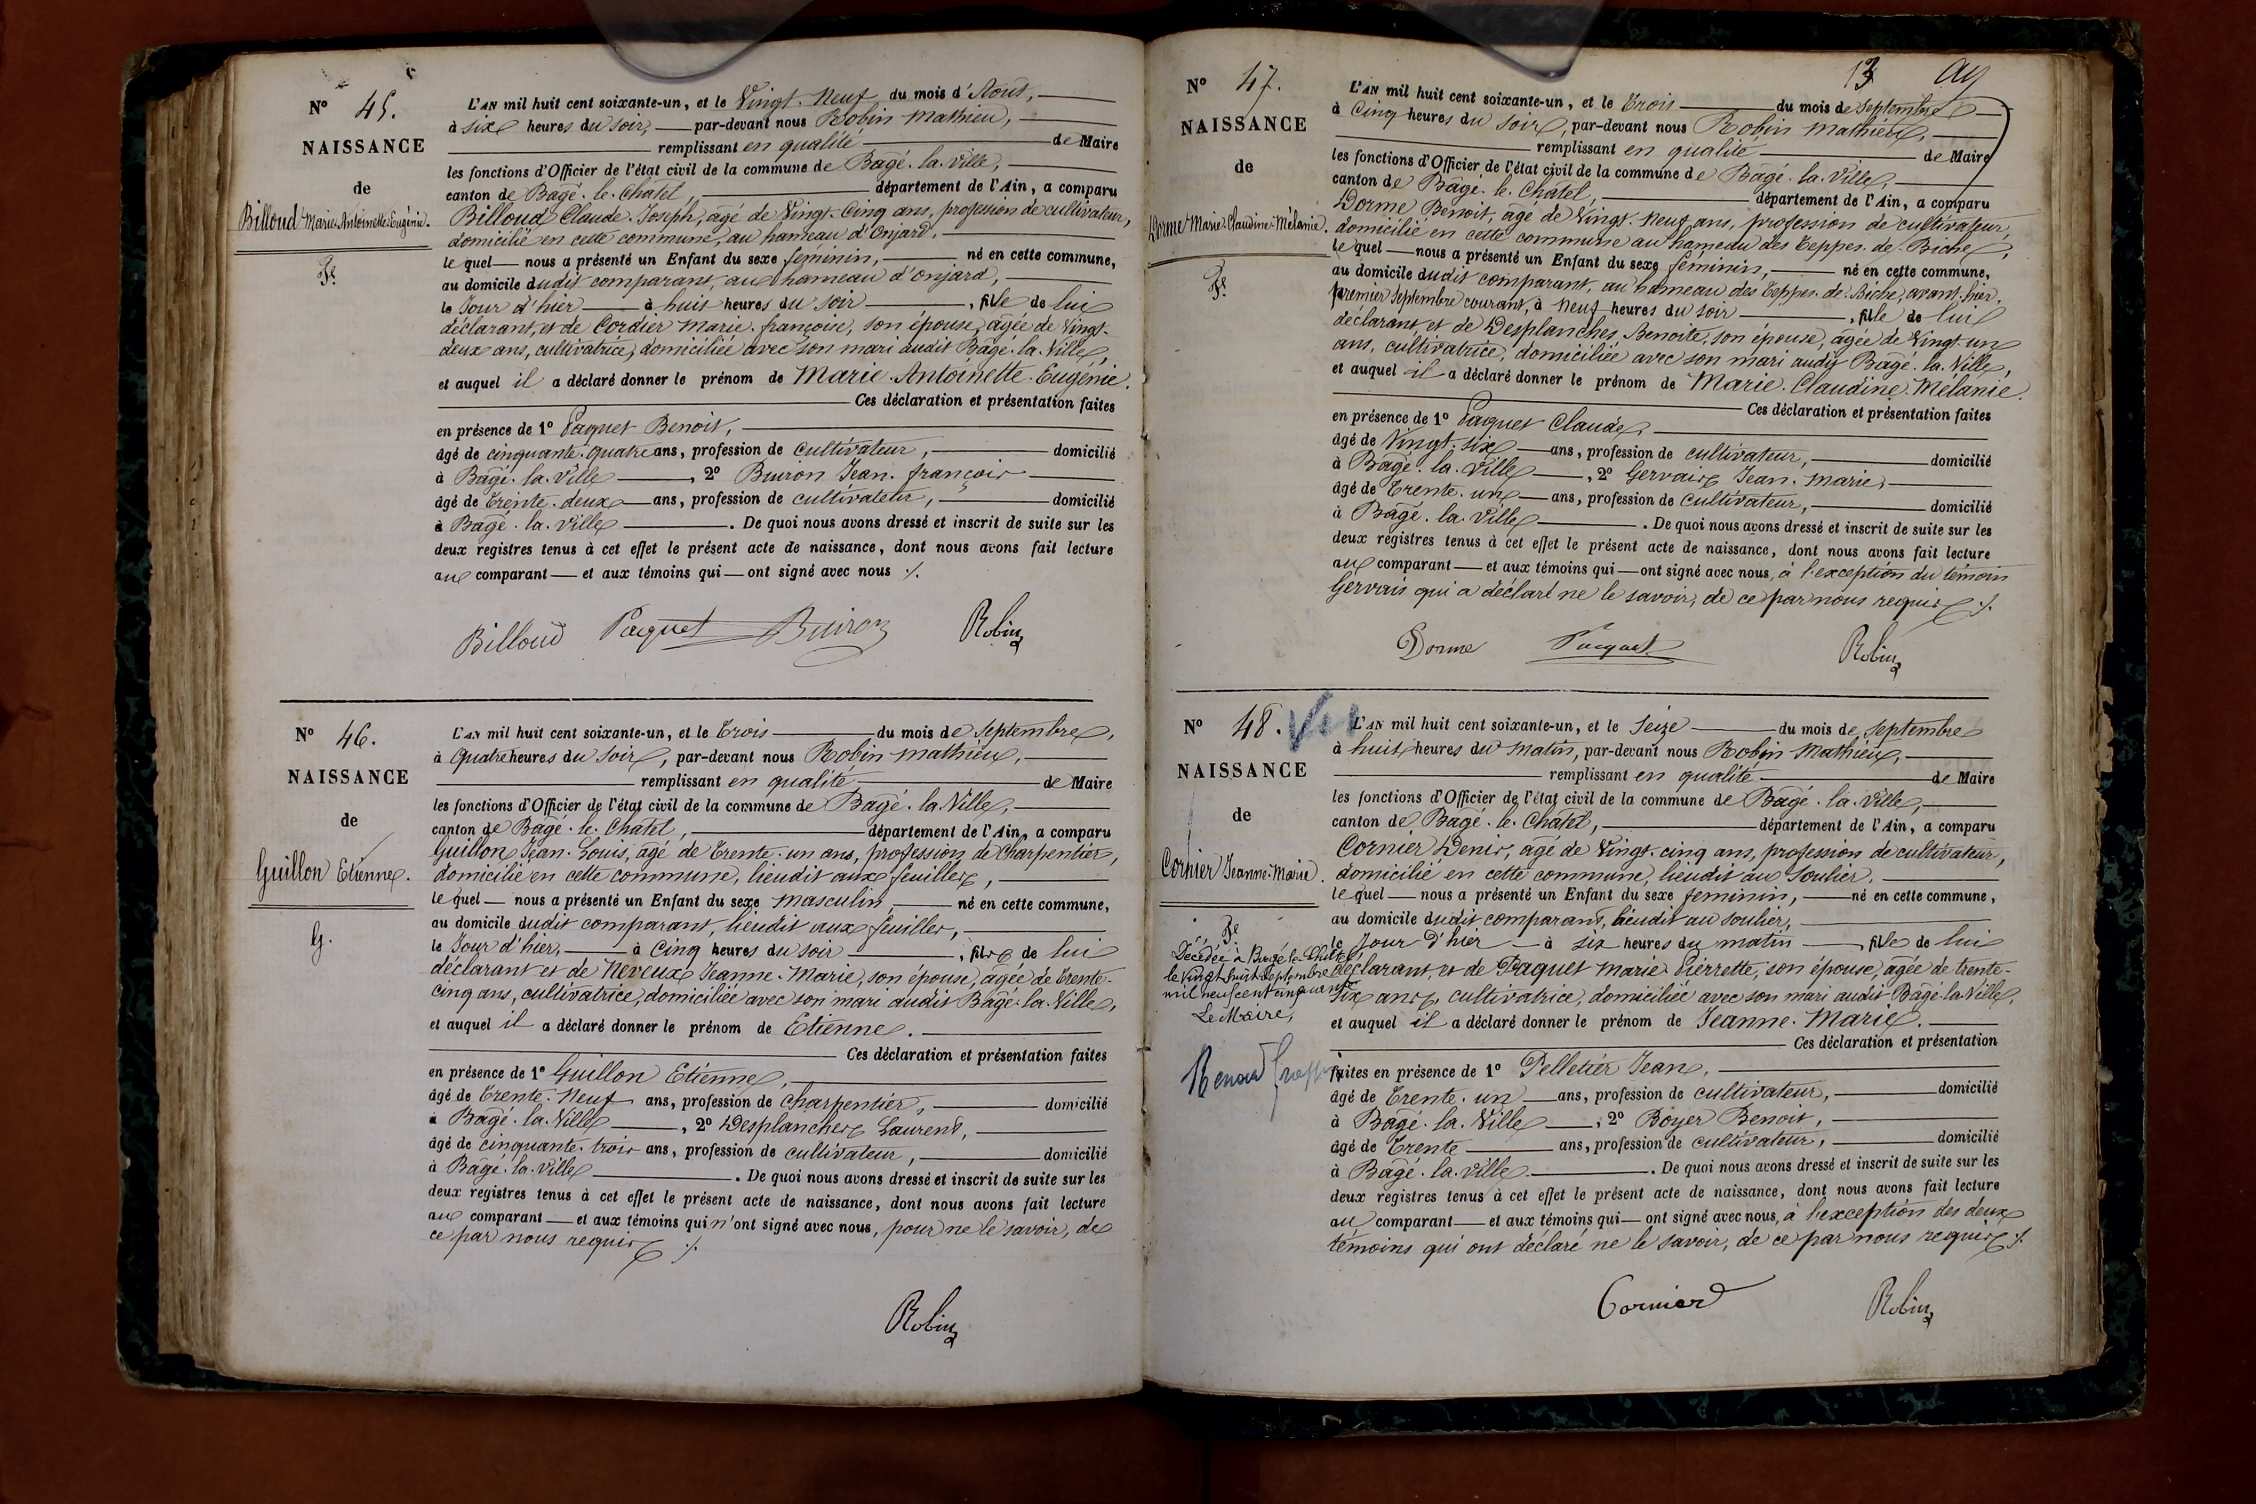 N° 45.
NAISSANCE
de
Billoud Marie-Antoinette-Eugénie.
Fe.
L'AN mil huit cent soixante-un, et le Vingt-Neuf du mois d'Aout,
à six heures du soir, par-devant nous Robin Mathieu,
remplissant en qualité de Maire
les fonctions d'Officier de l'état civil de la commune de Bâgé-la-Ville,
canton de Bâgé-le-Châtel, département de l'Ain, a comparu
Billoud Claude-Joseph, âgé de Vingt-Cinq ans, profession de cultivateur,
domicilié en cette commune, au hameau d'Onjard,
lequel nous a présenté un Enfant du sexe féminin, né en cette commune,
au domicile dudit comparant, au hameau d'onjard,
le Jour d'hier à huit heures du soir, fille de lui
déclarant, et de Cordier Marie-françoise, son épouse, âgée de Vingt-
deux ans, cultivatrice, domiciliée avec son mari audit Bâgé-la-Ville,
et auquel il a déclaré donner le prénom de Marie-Antoinette-Eugénie.
Ces déclaration et présentation faites
en présence de 1° Paquet Benoit,
âgé de cinquante-quatre ans, profession de cultivateur, domicilié
à Bâgé-la-Ville, 2° Buiron Jean-françois
âgé de Trente-deux ans, profession de cultivateur, domicilié
à Bâgé-la-Ville. De quoi nous avons dressé et inscrit de suite sur les
deux registres tenus à cet effet le présent acte de naissance, dont nous avons fait lecture
aux comparant et aux témoins qui ont signé avec nous ./.
Billoud Paquet Buiron Robin
N° 46.
NAISSANCE
de
Guillon Etienne.
G.
L'AN mil huit cent soixante-un, et le Trois du mois de Septembre,
à Quatre heures du soir, par-devant nous Robin Mathieu,
remplissant en qualité de Maire
les fonctions d'Officier de l'état civil de la commune de Bâgé-la-Ville,
canton de Bâgé-le-Châtel, département de l'Ain, a comparu
Guillon Jean-Louis, âgé de Trente-un ans, profession de Charpentier,
domicilié en cette commune, lieudit aux feuilles,
lequel nous a présenté un Enfant du sexe masculin, né en cette commune,
au domicile dudit comparant, lieudit aux feuilles,
le Jour d'hier, à Cinq heures du soir, fils de lui
déclarant et de Neveux Jeanne-Marie, son épouse, âgée de Trente-
Cinq ans, cultivatrice, domiciliée avec son mari audit Bâgé-la-Ville,
et auquel il a déclaré donner le prénom de Etienne.
Ces déclaration et présentation faites
en présence de 1° Guillon Etienne,
âgé de Trente-Neuf ans, profession de charpentier, domicilié
à Bâgé-la-Ville, 2° Desplanches Laurent,
âgé de cinquante-trois ans, profession de cultivateur, domicilié
à Bâgé-la-Ville. De quoi nous avons dressé et inscrit de suite sur les
deux registres tenus à cet effet le présent acte de naissance, dont nous avons fait lecture
aux comparant et aux témoins qui n'ont signé avec nous, pour ne le savoir, de
ce par nous requis ./.
Robin
13
N° 47.
NAISSANCE
de
Dorme Marie-Claudine-Mélanie.
Fe.
L'AN mil huit cent soixante-un, et le Trois du mois de Septembre
à Cinq heures du soir, par-devant nous Robin Mathieu,
remplissant en qualité de Maire
les fonctions d'Officier de l'état civil de la commune de Bâgé-la-Ville,
canton de Bâgé-le-Châtel, département de l'Ain, a comparu
Dorme Benoit, âgé de Vingt-Neuf ans, profession de cultivateur,
domicilié en cette commune au hameau des Teppes-de-Biche,
lequel nous a présenté un Enfant du sexe féminin, né en cette commune,
au domicile dudit comparant, au hameau des Teppes-de-Biche, avant-hier,
premier Septembre courant, à Neuf heures du soir, fille de lui
déclarant et de Desplanches Benoite, son épouse, âgée de Vingt-un
ans, cultivatrice, domiciliée avec son mari audit Bâgé-la-Ville,
et auquel il a déclaré donner le prénom de Marie-Claudine-Mélanie.
Ces déclaration et présentation faites
en présence de 1° Paquet Claude,
âgé de Vingt-six ans, profession de cultivateur, domicilié
à Bâgé-la-Ville, 2° Gervais Jean-Marie,
âgé de Trente-un ans, profession de Cultivateur, domicilié
à Bâgé-la-Ville. De quoi nous avons dressé et inscrit de suite sur les
deux registres tenus à cet effet le présent acte de naissance, dont nous avons fait lecture
aux comparant et aux témoins qui ont signé avec nous, à l'exception du témoin
Gervais qui a déclaré ne le savoir, de ce par nous requis ./.
Dorme Paquet Robin
N° 48. Vu
NAISSANCE
de
Cornier Jeanne-Marie.
Fe
Décédée à Bâgé-le-Châtel
le vingt huit Septembre
mil neuf cent cinquante
Le Maire,
L'AN mil huit cent soixante-un, et le Seize du mois de Septembre
à huit heures du matin, par-devant nous Robin Mathieu,
remplissant en qualité de Maire
les fonctions d'Officier de l'état civil de la commune de Bâgé-la-Ville,
canton de Bâgé-le-Châtel, département de l'Ain, a comparu
Cornier Denis, âgé de Vingt-cinq ans, profession de cultivateur,
domicilié en cette commune, lieudit au Soulier,
lequel nous a présenté un Enfant du sexe féminin, né en cette commune,
au domicile dudit comparant, lieudit au soulier,
le Jour d'hier à six heures du matin, fille de lui
déclarant et de Paquet Marie-Pierrette, son épouse, âgée de trente-
six ans, cultivatrice, domiciliée avec son mari audit Bâgé-la-Ville,
et auquel il a déclaré donner le prénom de Jeanne-Marie.
Ces déclaration et présentation
faites en présence de 1° Pelletier Jean,
âgé de Trente-un ans, profession de cultivateur, domicilié
à Bâgé-la-Ville, 2° Boyer Benoit,
âgé de Trente ans, profession de cultivateur, domicilié
à Bâgé-la-Ville. De quoi nous avons dressé et inscrit de suite sur les
deux registres tenus à cet effet le présent acte de naissance, dont nous avons fait lecture
au comparant et aux témoins qui ont signé avec nous, à l'exception des deux
témoins qui ont déclaré ne le savoir, de ce par nous requis ./.
Cornier Robin